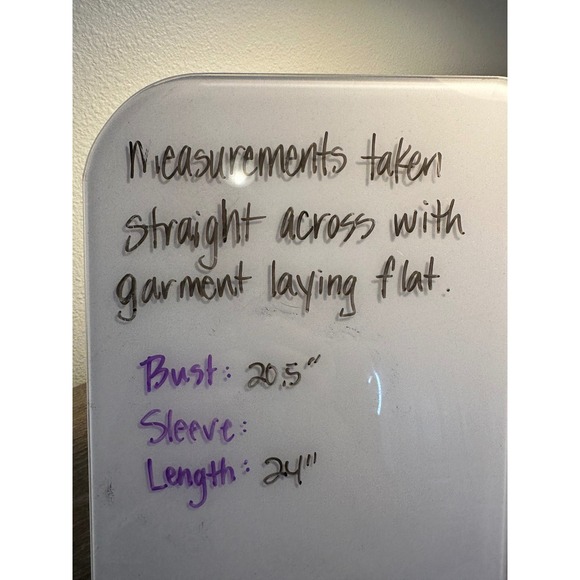 Measurements taken
straight across with
garment laying flat.
Bust: 20.5"
Sleeve:
Length: 24"